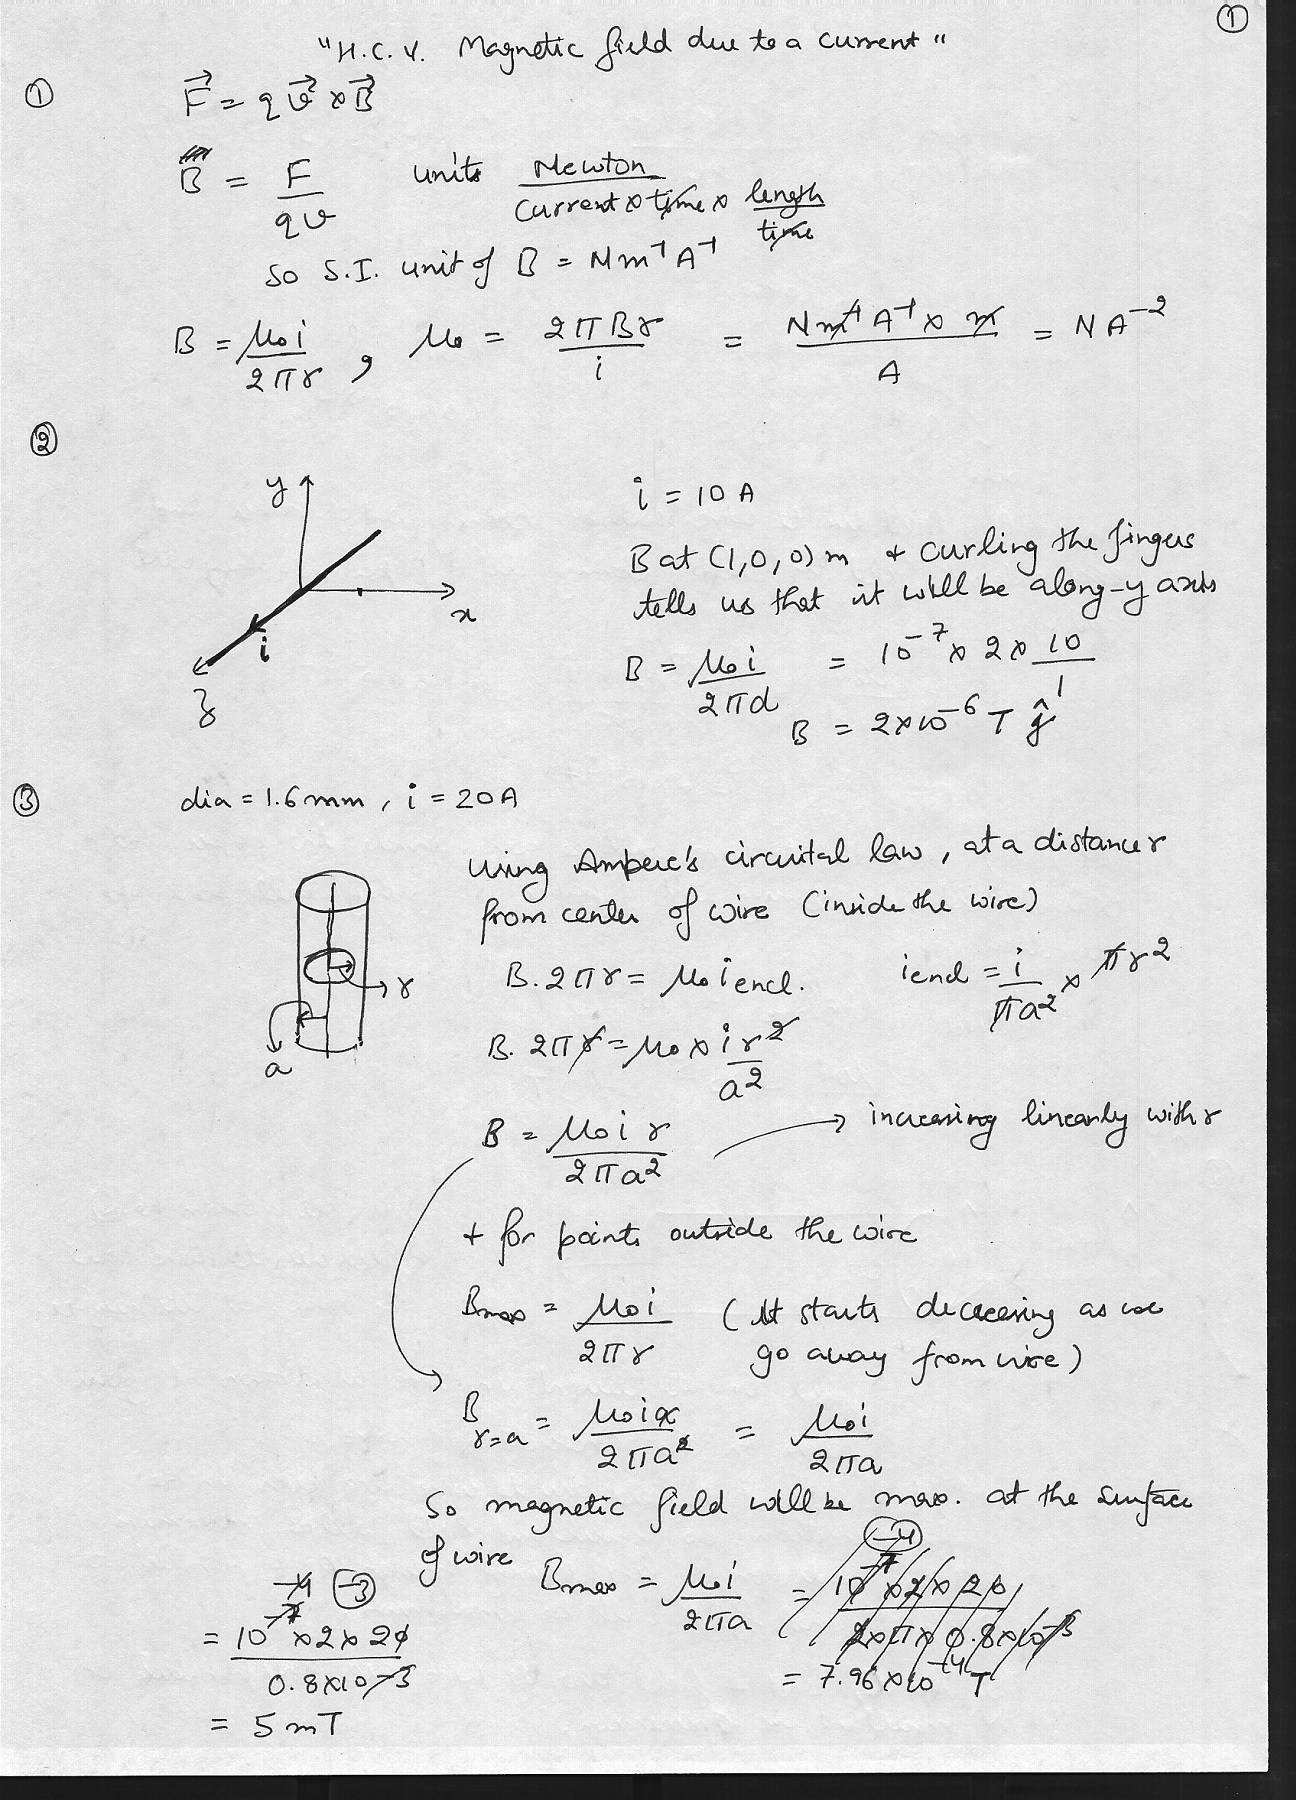 ①
"H.C.V. Magnetic field due to a current"
① F⃗ = q v⃗ × B⃗
B = F / qv units Newton / Current × time × length / time
So S.I. unit of B = N m⁻¹ A⁻¹
B = μ₀ i / 2πr , μ₀ = 2πBr / i = N m⁻¹ A⁻¹ × m / A = N A⁻²
②
y
x
i
z
i = 10 A
B at (1,0,0) m + curling the fingers
tells us that it will be along -y axis
B = μ₀ i / 2πd = 10⁻⁷ × 2 × 10 / 1
B = 2×10⁻⁶ T ĵ
③ dia = 1.6 mm, i = 20 A
using Ampere's circuital law, at a distance r
from center of wire (inside the wire)
r
a
B. 2πr = μ₀ i encl. iencl = i / πa² × πr²
B. 2πr = μ₀ × i r² / a²
B = μ₀ i r / 2πa² → increasing linearly with r
+ for points outside the wire
Bmax = μ₀ i / 2πr (It starts decreasing as we
go away from wire)
B r=a = μ₀ i a / 2πa² = μ₀ i / 2πa
So magnetic field will be max. at the surface
of wire Bmax = μ₀ i / 2πa = 10⁻⁷ × 2 × 20 / 2×π×0.8×10⁻³
-4
= 7.96×10⁻⁴ T
-4 -3
= 10⁻⁷ × 2 × 20 / 0.8×10⁻³
= 5 mT